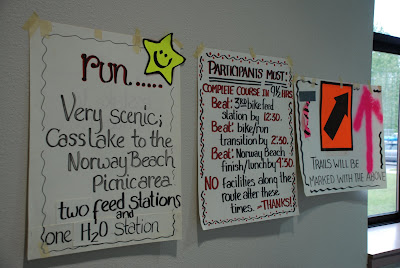 run......
Very scenic;
Cass Lake to the
Norway Beach
Picnic area
two feed stations
and
one H2O Station
PARTICIPANTS MUST:
COMPLETE COURSE IN 9½ HRS
Beat: 3RD bike feed
station by 12:30.
Beat: bike/run
transition by 2:30.
Beat: Norway Beach
finish/lunch by 4:30
NO facilities along the
route after these
times. -THANKS!
TRAILS WILL BE
MARKED WITH THE ABOVE